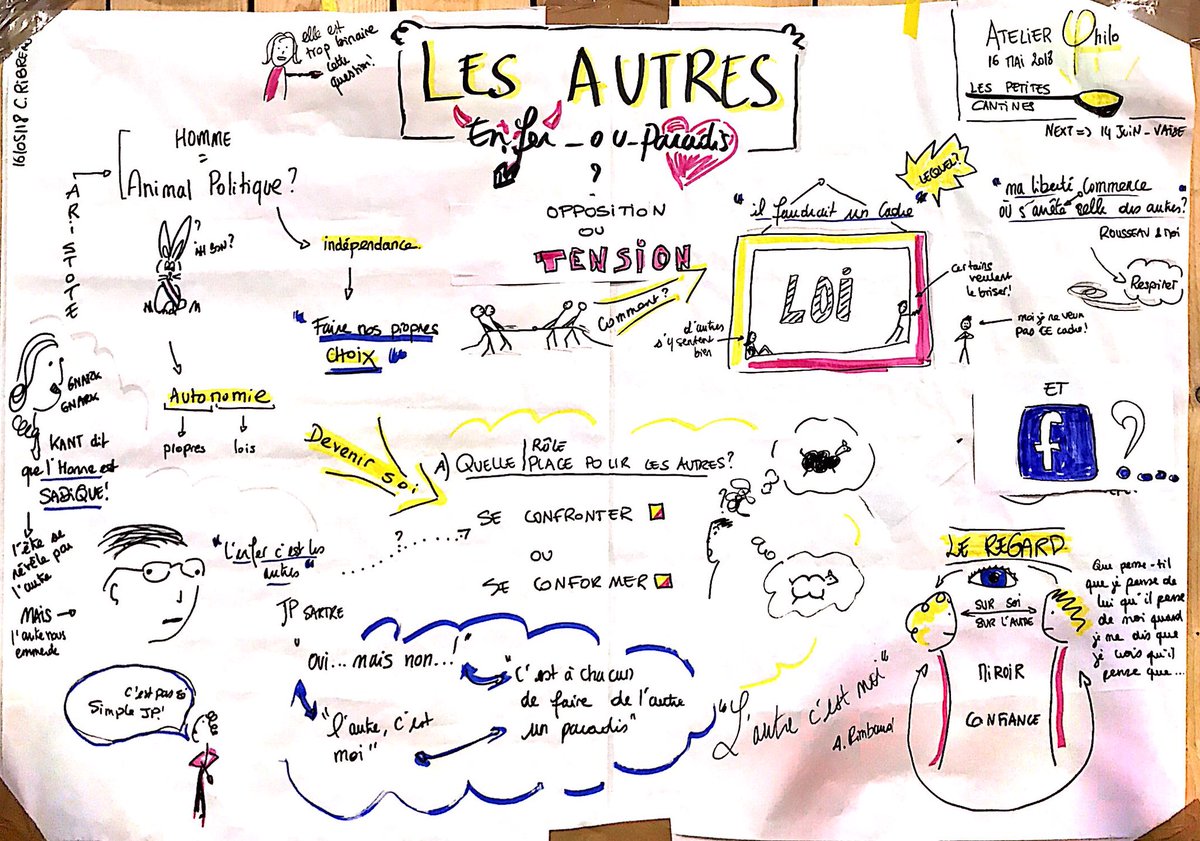 16/05/18 C. RiBREN
elle est
trop binaire
cette
question!
LES AUTRES
Enfer_ou_paradis
?
ATELIER Philo
16 MAI 2018
LES PETITES
CANTINES
NEXT => 14 JUIN_VAISE
ARISTOTE
HOMME
=
Animal Politique?
?
AH BON?
indépendance
"Faire nos propres
CHOIX"
Autonomie
propres
lois
OPPOSITION
OU
TENSION
Comment?
"il faudrait un cadre"
LEQUEL?
LOI
certains
veulent
le briser!
d'autres
s'y sentent
bien
moi je ne veux
pas CE cadre!
"ma liberté commence
où s'arrête celle des autres?"
ROUSSEAU & moi
Respirer
ET
f ?
GNARK
GNARK
KANT dit
que l'Homme est
SADIQUE!
l'être se
révèle par
l'autre
MAIS
l'autre nous
emmerde
Devenir soi
A) QUELLE RÔLE
PLACE POUR LES AUTRES?
SE CONFRONTER
OU
SE CONFORMER
?
"L'enfer c'est les
autres"
JP SARTRE
"
OUI... mais non...!
"l'autre, c'est
moi"
"C'est à chacun
de faire de l'autre
un paradis"
C'est pas si
Simple JP!
"L'autre c'est moi"
A. Rimbaud
LE REGARD
SUR SOI
SUR L'AUTRE
MIROIR
CONFIANCE
Que pense-t-il
que je pense de
lui qu'il pense
de moi quand
je me dis que
je crois qu'il
pense que...